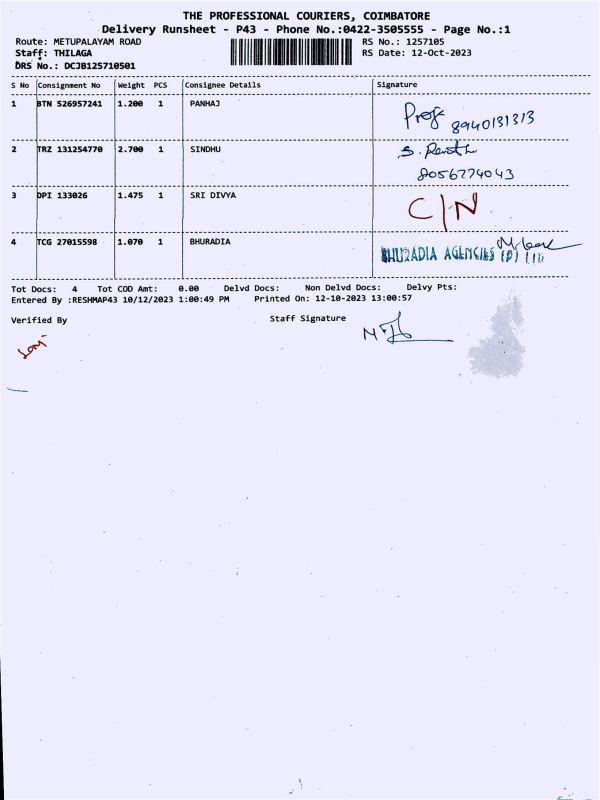 THE PROFESSIONAL COURIERS, COIMBATORE
Delivery Runsheet - P43 - Phone No.:0422-3505555 - Page No.:1
Route: METUPALAYAM ROAD RS No.: 1257105
Staff: THILAGA RS Date: 12-Oct-2023
DRS No.: DCJB125710501
S No Consignment No Weight PCS Consignee Details Signature
1 BTN 526957241 1.200 1 PANHAJ
8940131313
2 TRZ 131254770 2.700 1 SINDHU
8056774043
3 DPI 133026 1.475 1 SRI DIVYA C/N
4 TCG 27015598 1.070 1 BHURADIA BHURADIA AGENCIES (P) LTD
Tot Docs: 4 Tot COD Amt: 0.00 Delvd Docs: Non Delvd Docs: Delvy Pts:
Entered By :RESHMAP43 10/12/2023 1:00:49 PM Printed On: 12-10-2023 13:00:57
Verified By Staff Signature